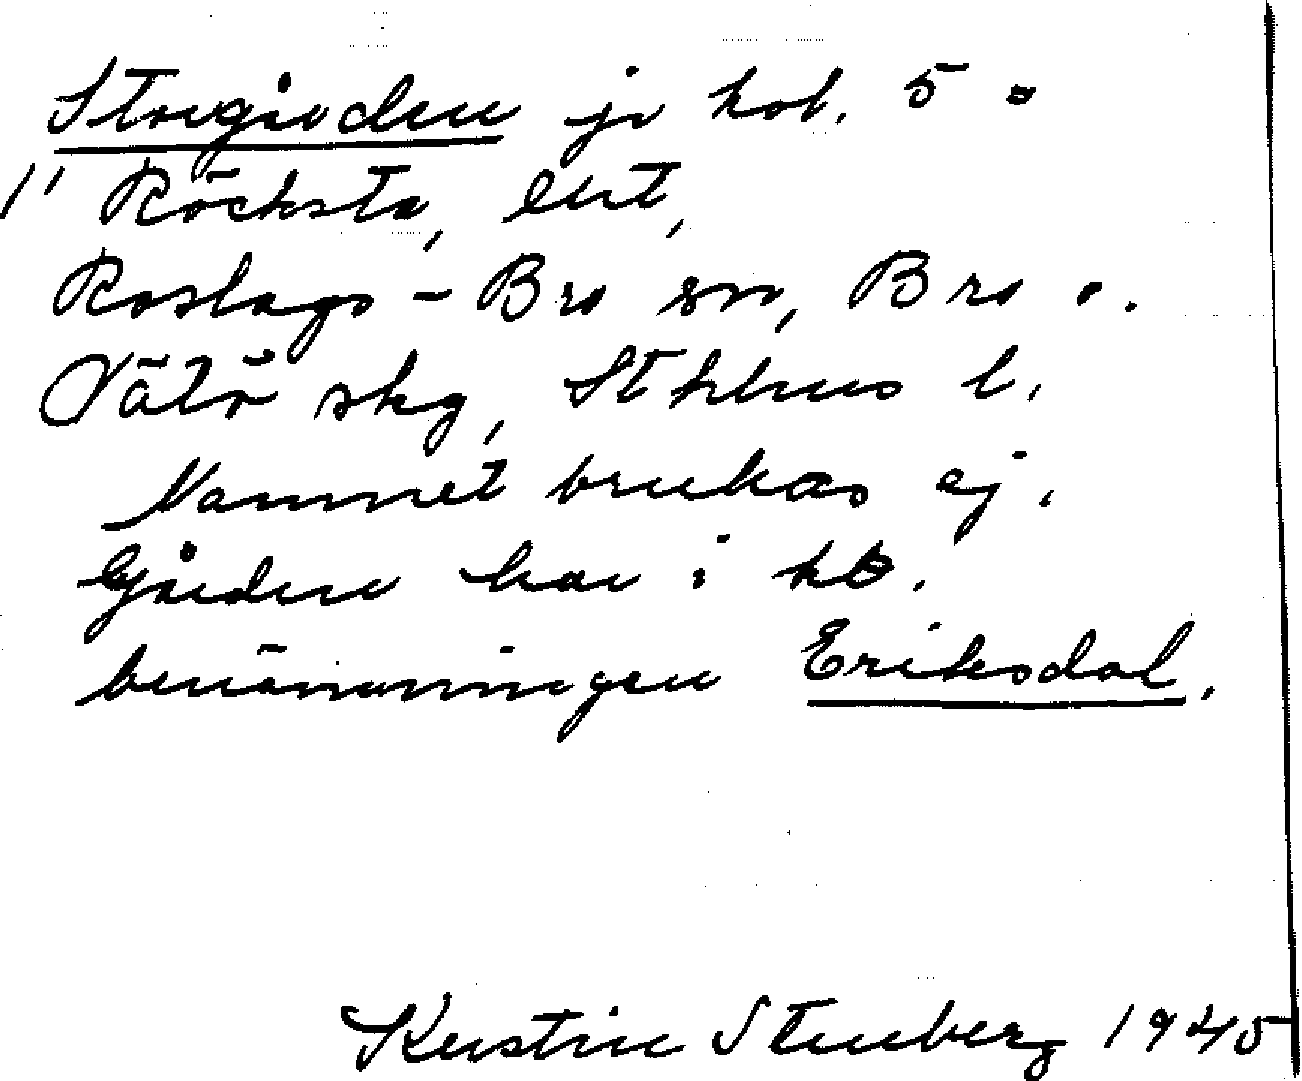 Storgården jo kol. 5 o
1" Röcksta, ert,
Roslags-Bro sn, Bro o.
Vätö skg, Sthlms l.
Namnet brukas ej.
Gården har i kb.
benämningen Eriksdal.
Kerstin Stenberg 1945